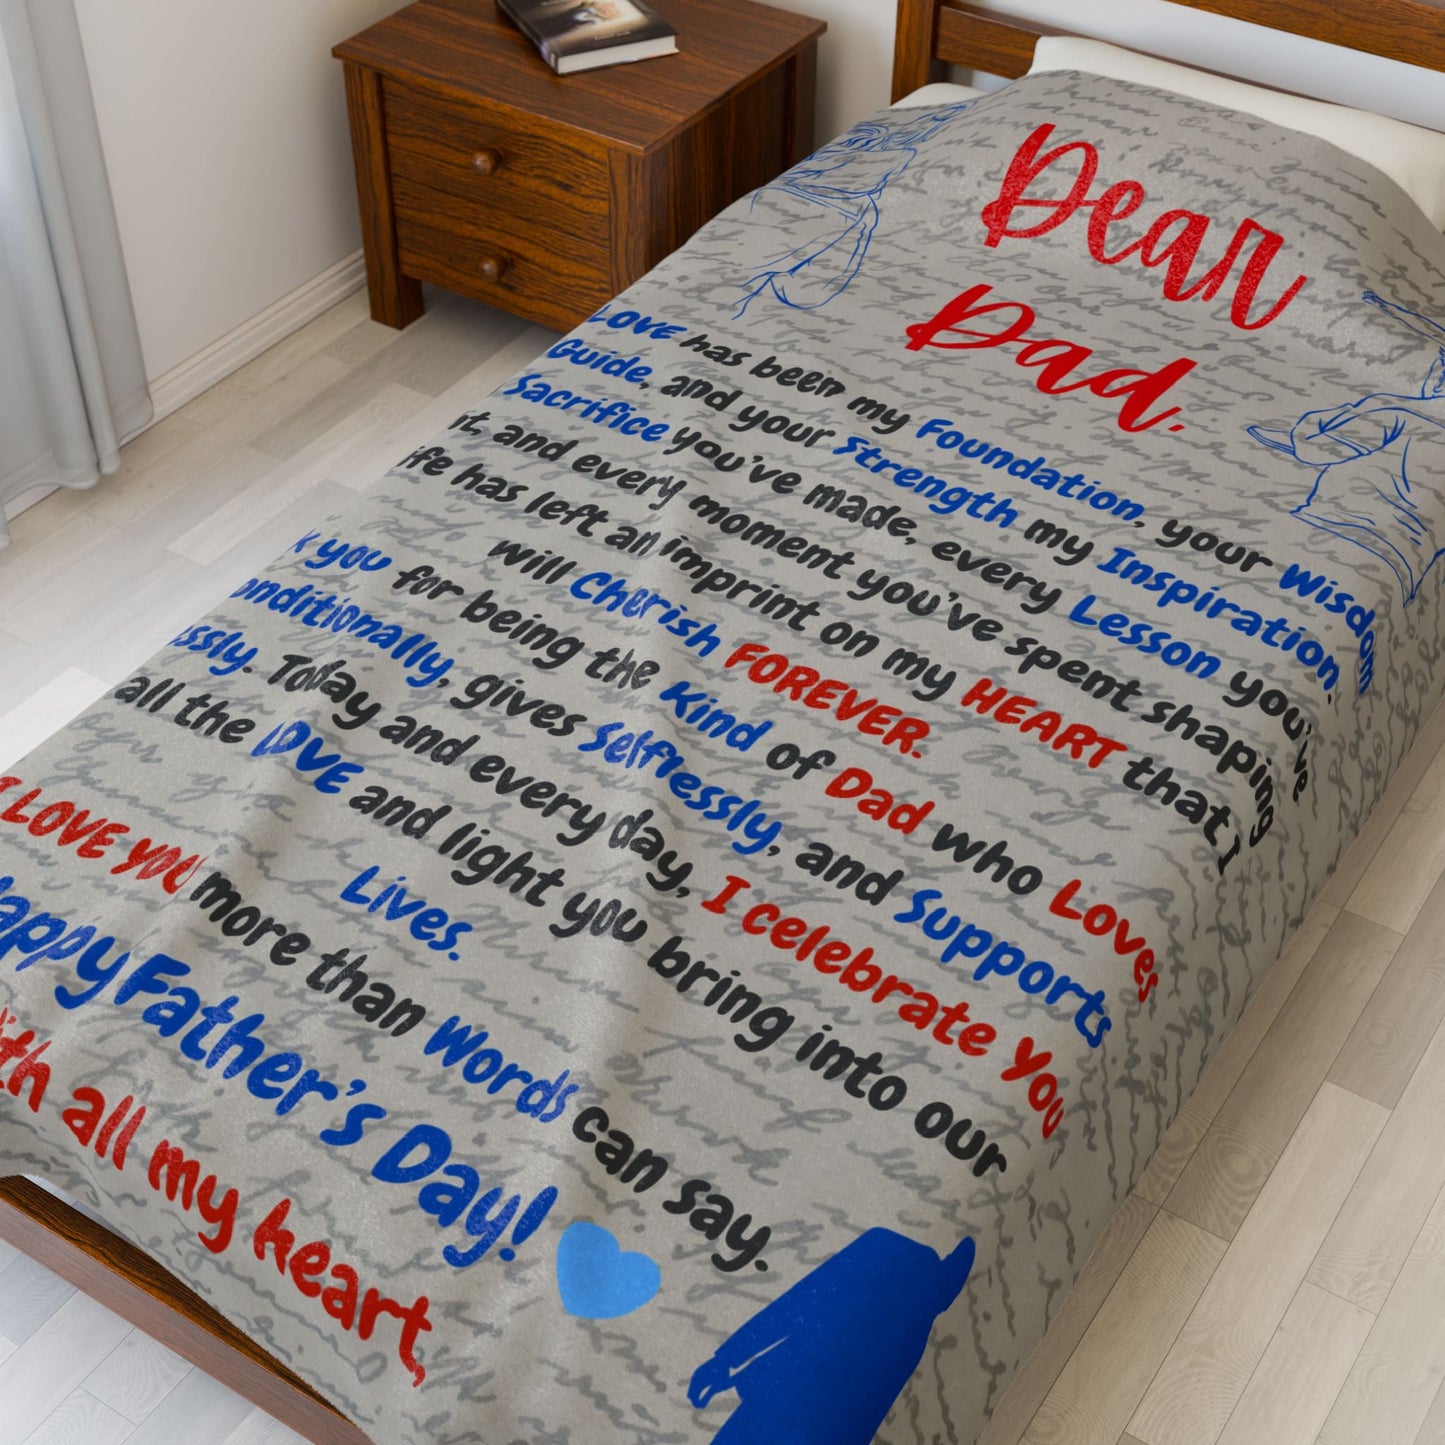 Dear
Dad.
LOVE has been my Foundation, your Wisdom
Guide, and your Strength my Inspiration.
Sacrifice you've made, every Lesson you've
and every moment you've spent shaping
has left an imprint on my HEART that I
will Cherish FOREVER.
you for being the Kind of Dad who Loves
gives Selflessly, and Supports
Today and every day, I celebrate You
all the LOVE and light you bring into our
Lives.
I LOVE YOU more than Words can say.
Happy Father's Day!
all my heart,